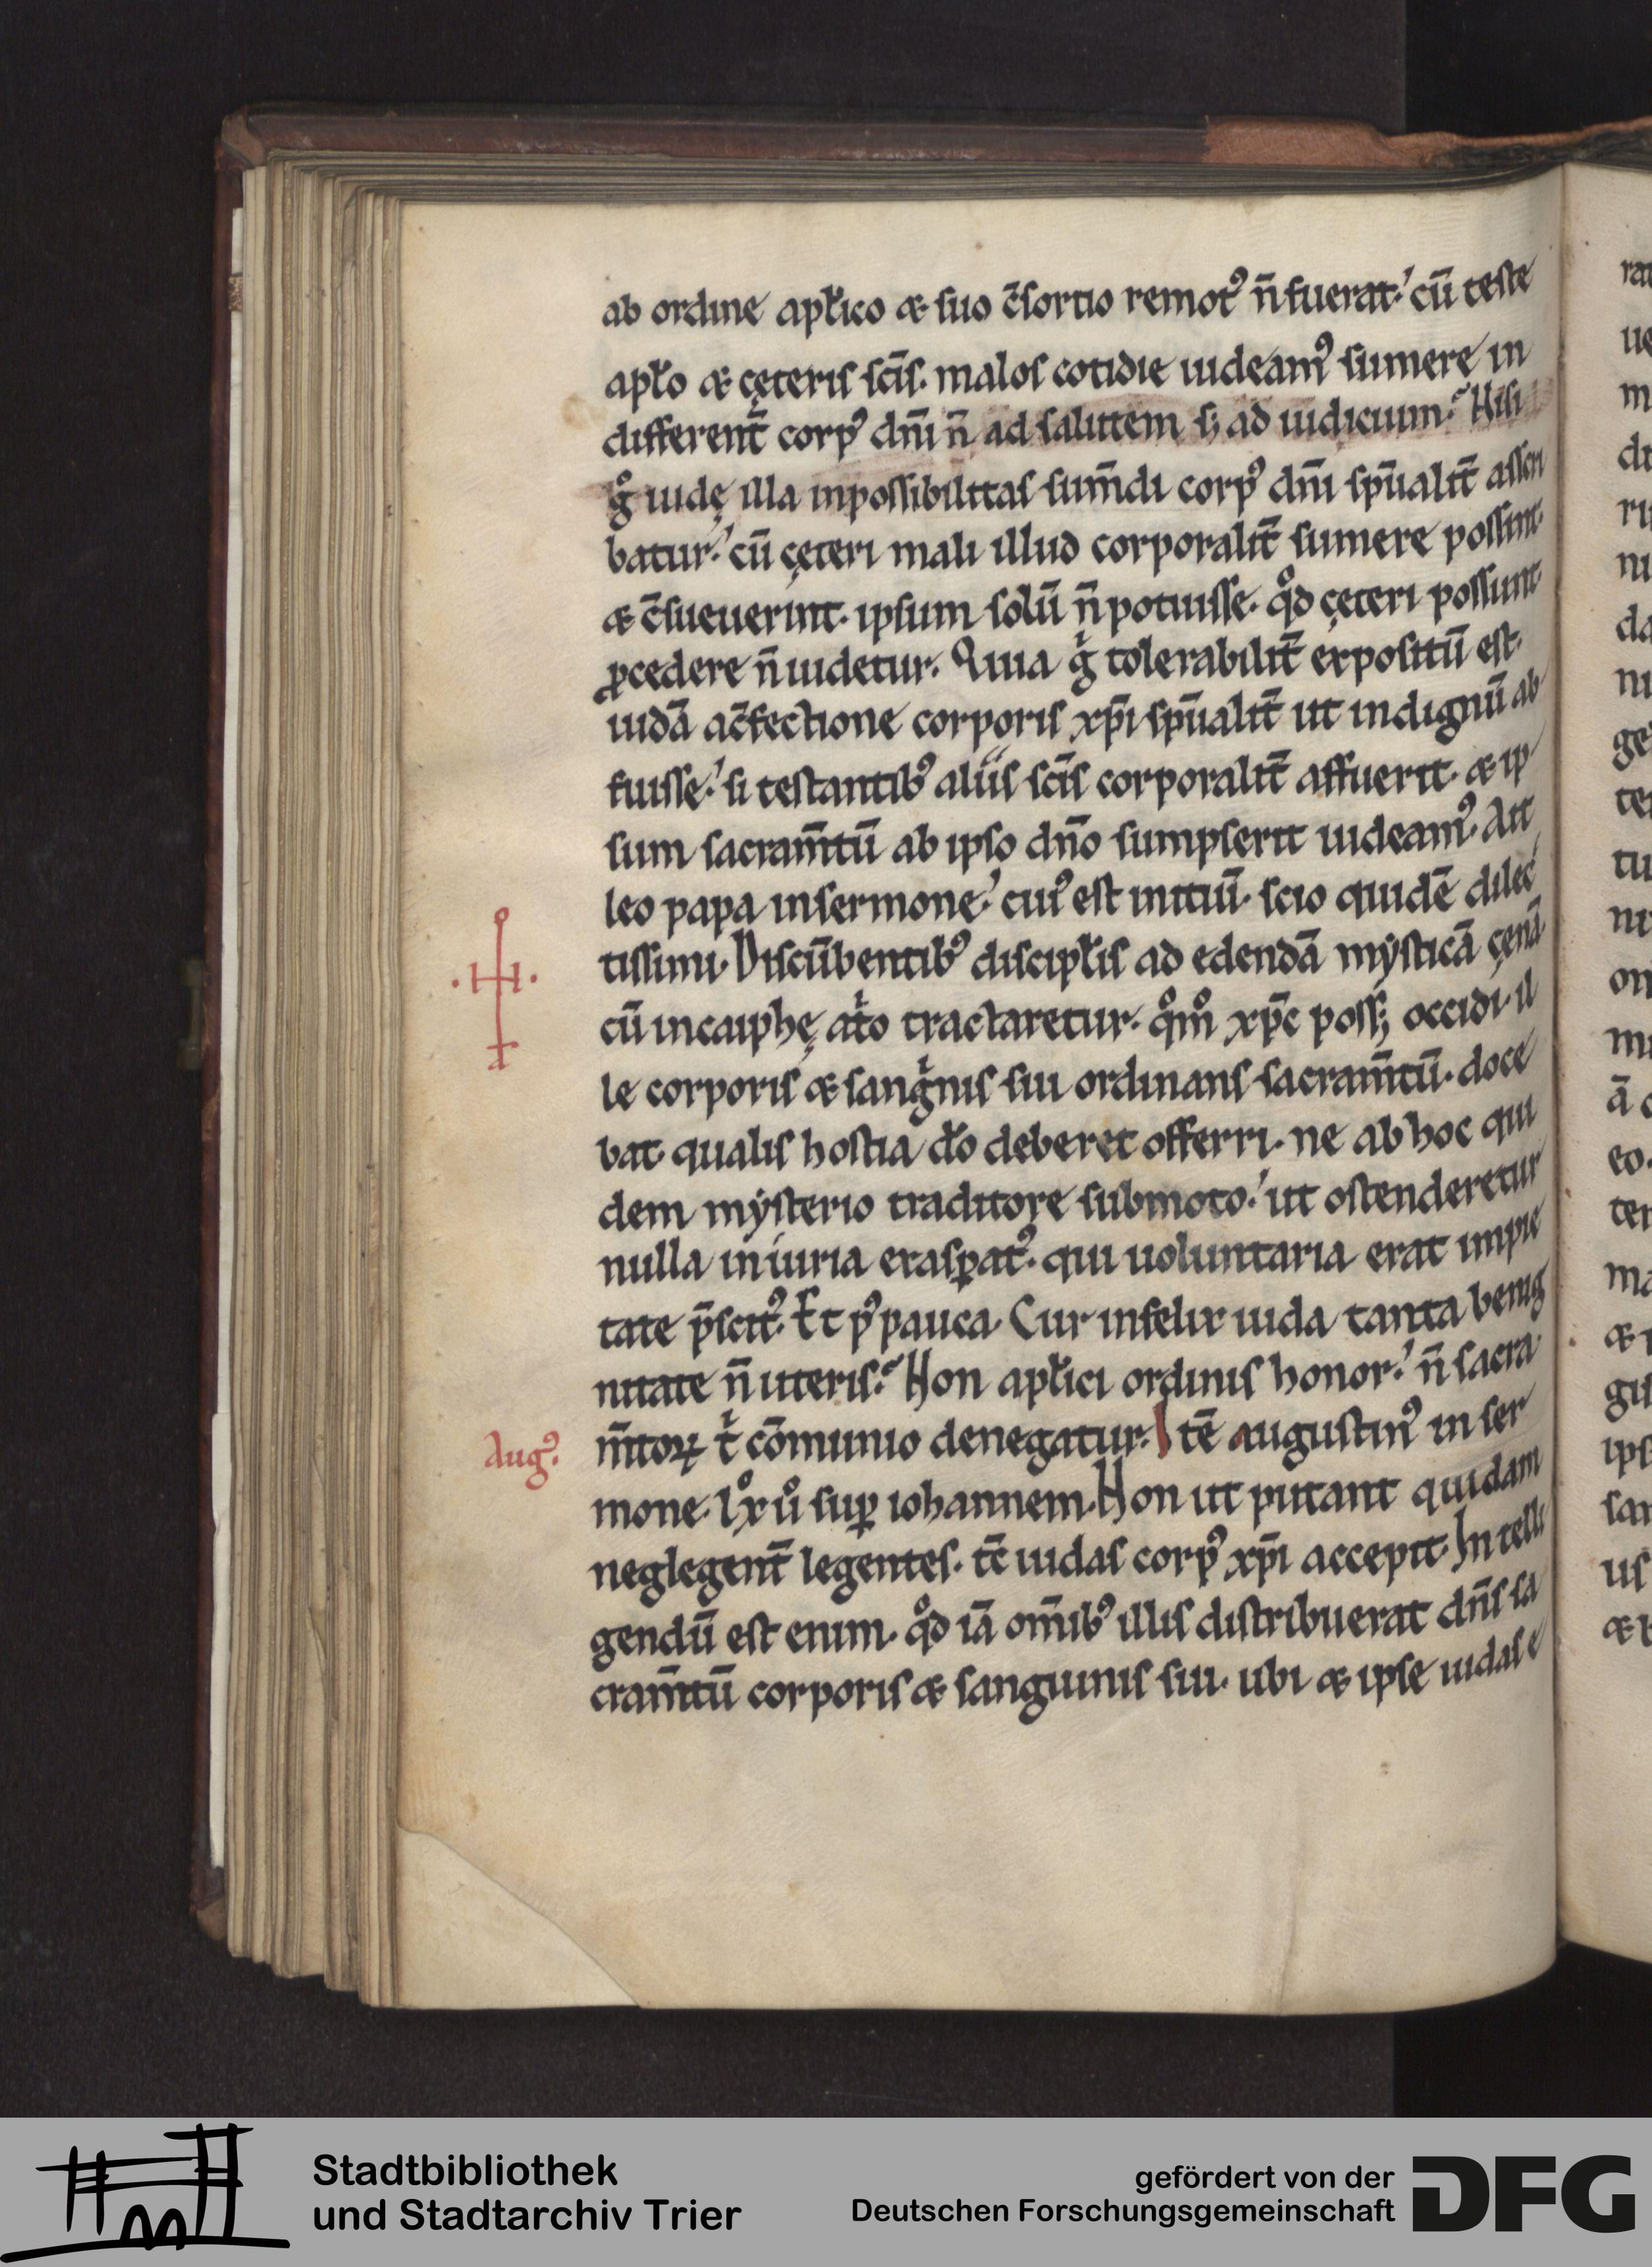 ab ordine apł̉ico & suo c̄sortio remot᷒ n̄ fuerat. cū teste
apło & cęteris sc̄is. malos cotidie uideam᷒ sumere in
different̄ corp᷒ dn̄i n̄ ad salutem s; ad iudicium. Nisi
gͦ iudę illa inpossibilitas sum̄di corp᷒ dn̄i sp̄ualit̄ asscri
batur. cū cęteri mali illud corporalit̄ sumere possint.
& c̄sueuerint. ipsum solū n̄ potuisse. qͦd cęteri possunt
ꝓcedere n̄ uidetur. Quia gͥ tolerabilit̄ expositū est.
iudā ac̄fectione corporis xp̄i sp̄ualit̄ ut indignū ab
fuisse. si testantib᷒ aliis sc̄is corporalit̄ affuerit. & ip
sum sacram̄tū ab ipso dn̄o sumpserit uideam᷒. Ait
leo papa in sermone. cui᷒ est initiū. scio quidē dilec
tissimi. Discūbentib᷒ discipłis ad edendā mysticā cęnā
cū incaiphę atͥo tractaretur. qͦmͦ xp̄c poss; occidi. il
le corporis & sangͥnis sui ordinans sacram̄tū. doce
bat qualis hostia do deberet offerri. ne ab hoc qui
dem mysterio traditore submoto. ut ostenderetur
nulla iniuria exasꝑat᷒. qui uoluntaria erat impie
tate p̄scit᷒. Et p᷒ pauca. Cur infelix iuda tanta benig
nitate n̄ uteris. Non apłici ordinis honor. n̄ sacra
Aug᷒.
m̄toꝝ tͥ cōmunio denegatur. Itē augustin᷒ in ser
mone. lxͦ uͦ suꝑ iohannem. Non ut putant quidam
neglegent̄ legentes. tc̄ iudas corp᷒ xp̄i accepit. Intelli
gendū est enim. qͦd iā om̄ib᷒ illis distribuerat dn̄s sa
cram̄tū corporis & sanguinis sui. ubi & ipse iudas e
ra
ue
m
ri
da
tu
eo.
ma
us
Stadtbibliothek
und Stadtarchiv Trier
gefördert von der
Deutschen Forschungsgemeinschaft
DFG